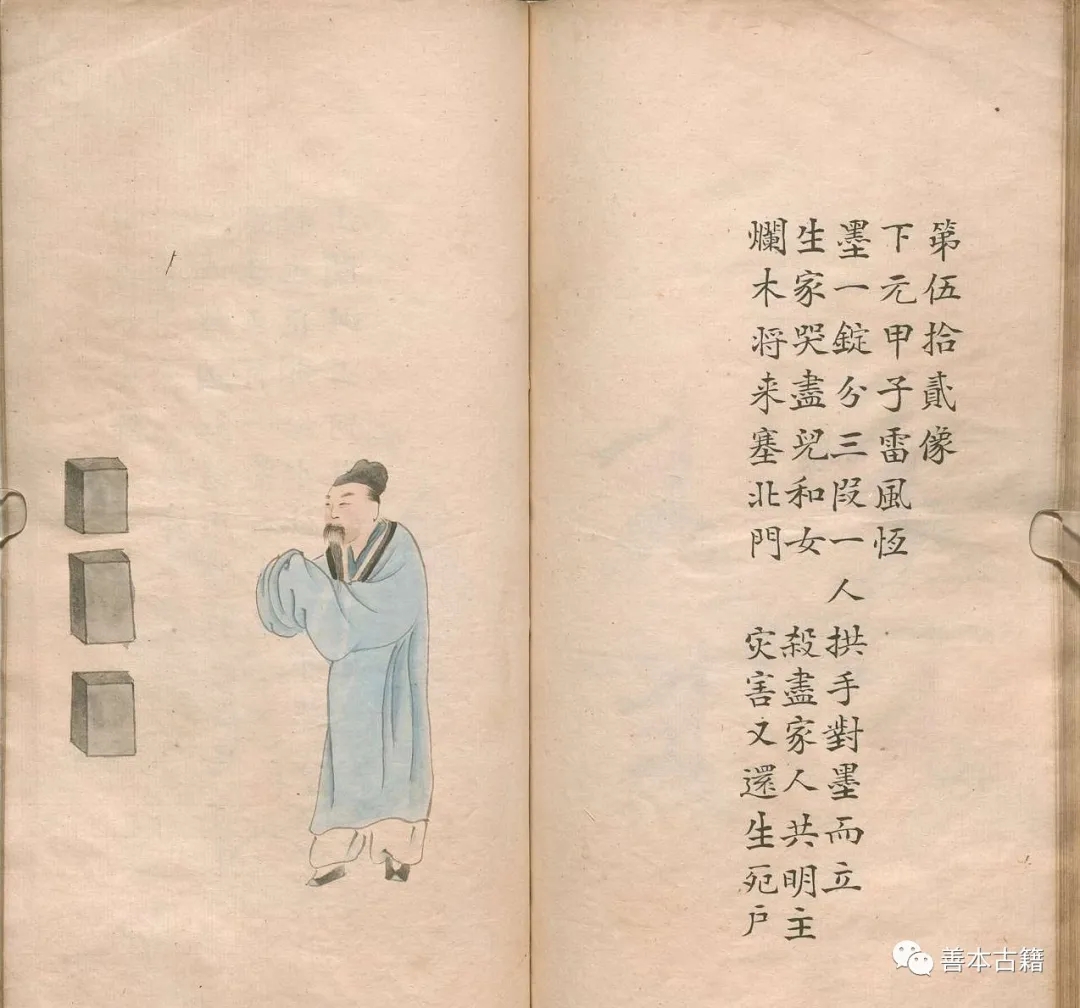 第伍拾貳像
下元甲子雷風恆
墨一錠分三段一人拱手對墨而立
生家哭盡兒和女 殺盡家人共明主
爛木将来塞北門 灾害又還生死戶
善本古籍